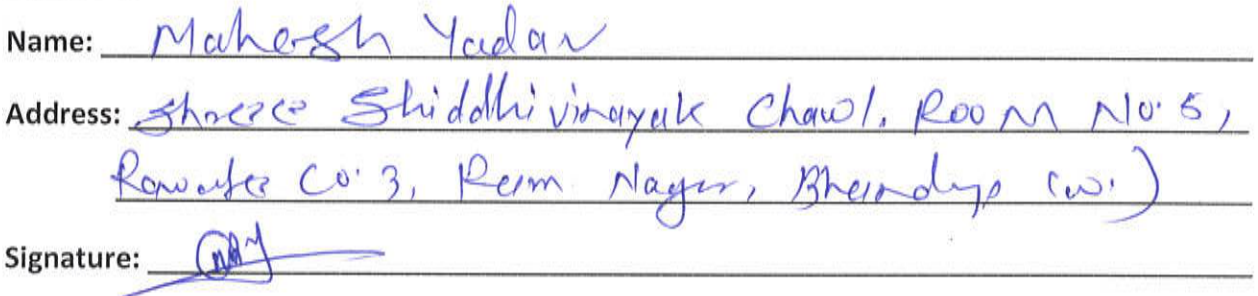 Name: Mahesh Yadav
Address: Shree Shiddhivinayak Chawl. Room No. 5,
Co. 3, Ram Nagar, Bhandup (w.)
Signature: